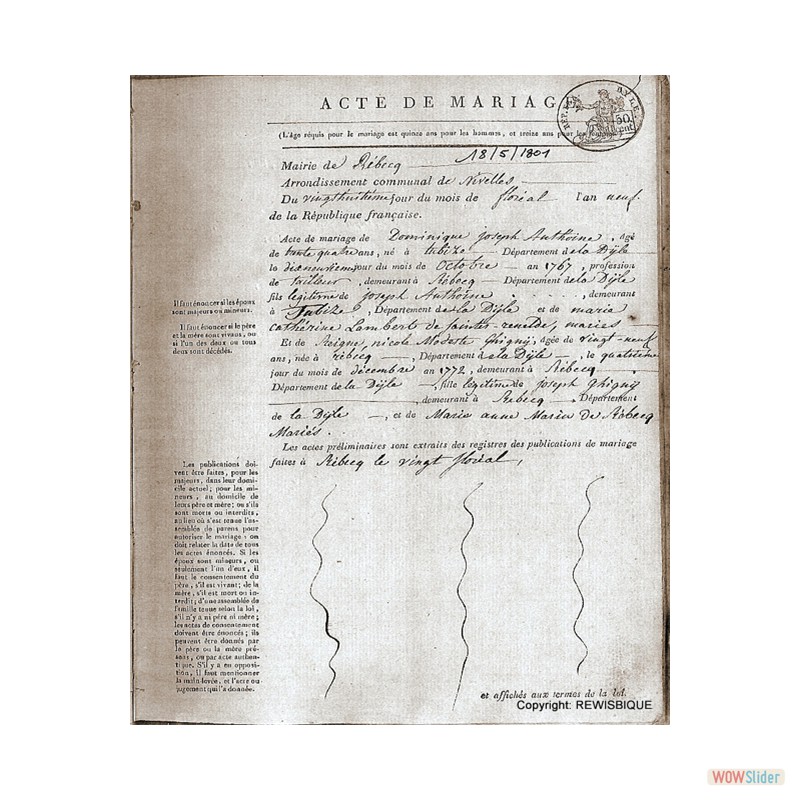 ACTE DE MARIAG
RÉP. FRA. DYLE.
50 Cent
(L'âge réquis pour le mariage est quinze ans pour les hommes, et treize ans pour les femmes.)
18/5/1801
Mairie de Rébecq
Arrondissement communal de Nivelles
Du vingthuitième jour du mois de floréal l'an neuf
de la République française.
Acte de mariage de Dominique Joseph Anthoine, agé
de trente quatre ans, né à tubize Département de la Dÿle
le dixneuvieme jour du mois de Octobre an 1767, profession
de tailleur, demeurant à Rébecq Département de la Dÿle
fils legitime de joseph Anthoine, demeurant
à Tubize, Département de la Dÿle et de maria
cathérine Lambert de saintes-renelde, mariés
Et de Reigne, nicole Modeste Ghigny, âgée de vingt-neuf
ans, née à rébecq, Département de la Dÿle, le quatrième
jour du mois de décembre an 1772, demeurant à Rébecq
Département de la Dÿle, fille legitime de Joseph Ghigny
, demeurant à Rebecq, Département
de la Dÿle, et de Marie anne Marin de Rébecq
Mariés.
Les actes préliminaires sont extraits des registres des publications de mariage
faites à Rébecq le vingt floréal,
et affichés aux termes de la loi.
Il faut énoncer si les époux
sont majeurs ou mineurs.
Il faut énoncer si le père
et la mère sont vivans, ou
si l'un des deux ou tous
deux sont décédés.
Les publications doi-
vent être faites, pour les
majeurs, dans leur domi-
cile actuel; pour les mi-
neurs, au domicile de
leurs père et mère; ou s'ils
sont morts ou interdits,
au lieu où s'est tenue l'as-
semblée de parens pour
autoriser le mariage: on
doit relater la date de tous
les actes énoncés. Si les
époux sont mineurs, ou
seulement l'un d'eux, il
faut le consentement du
père, s'il est vivant; de la
mère, s'il est mort ou in-
terdit; d'une assemblée de
famille tenue selon la loi,
s'il n'y a ni père ni mère;
les actes de consentement
doivent être énoncés; ils
peuvent être donnés par
le père ou la mère pré-
sens, ou par acte authen-
tique. S'il y a en opposi-
tion, il faut mentionner
la main-levée, et l'acte ou
jugement qui l'a donnée.
Copyright: REWISBIQUE
WOWSlider